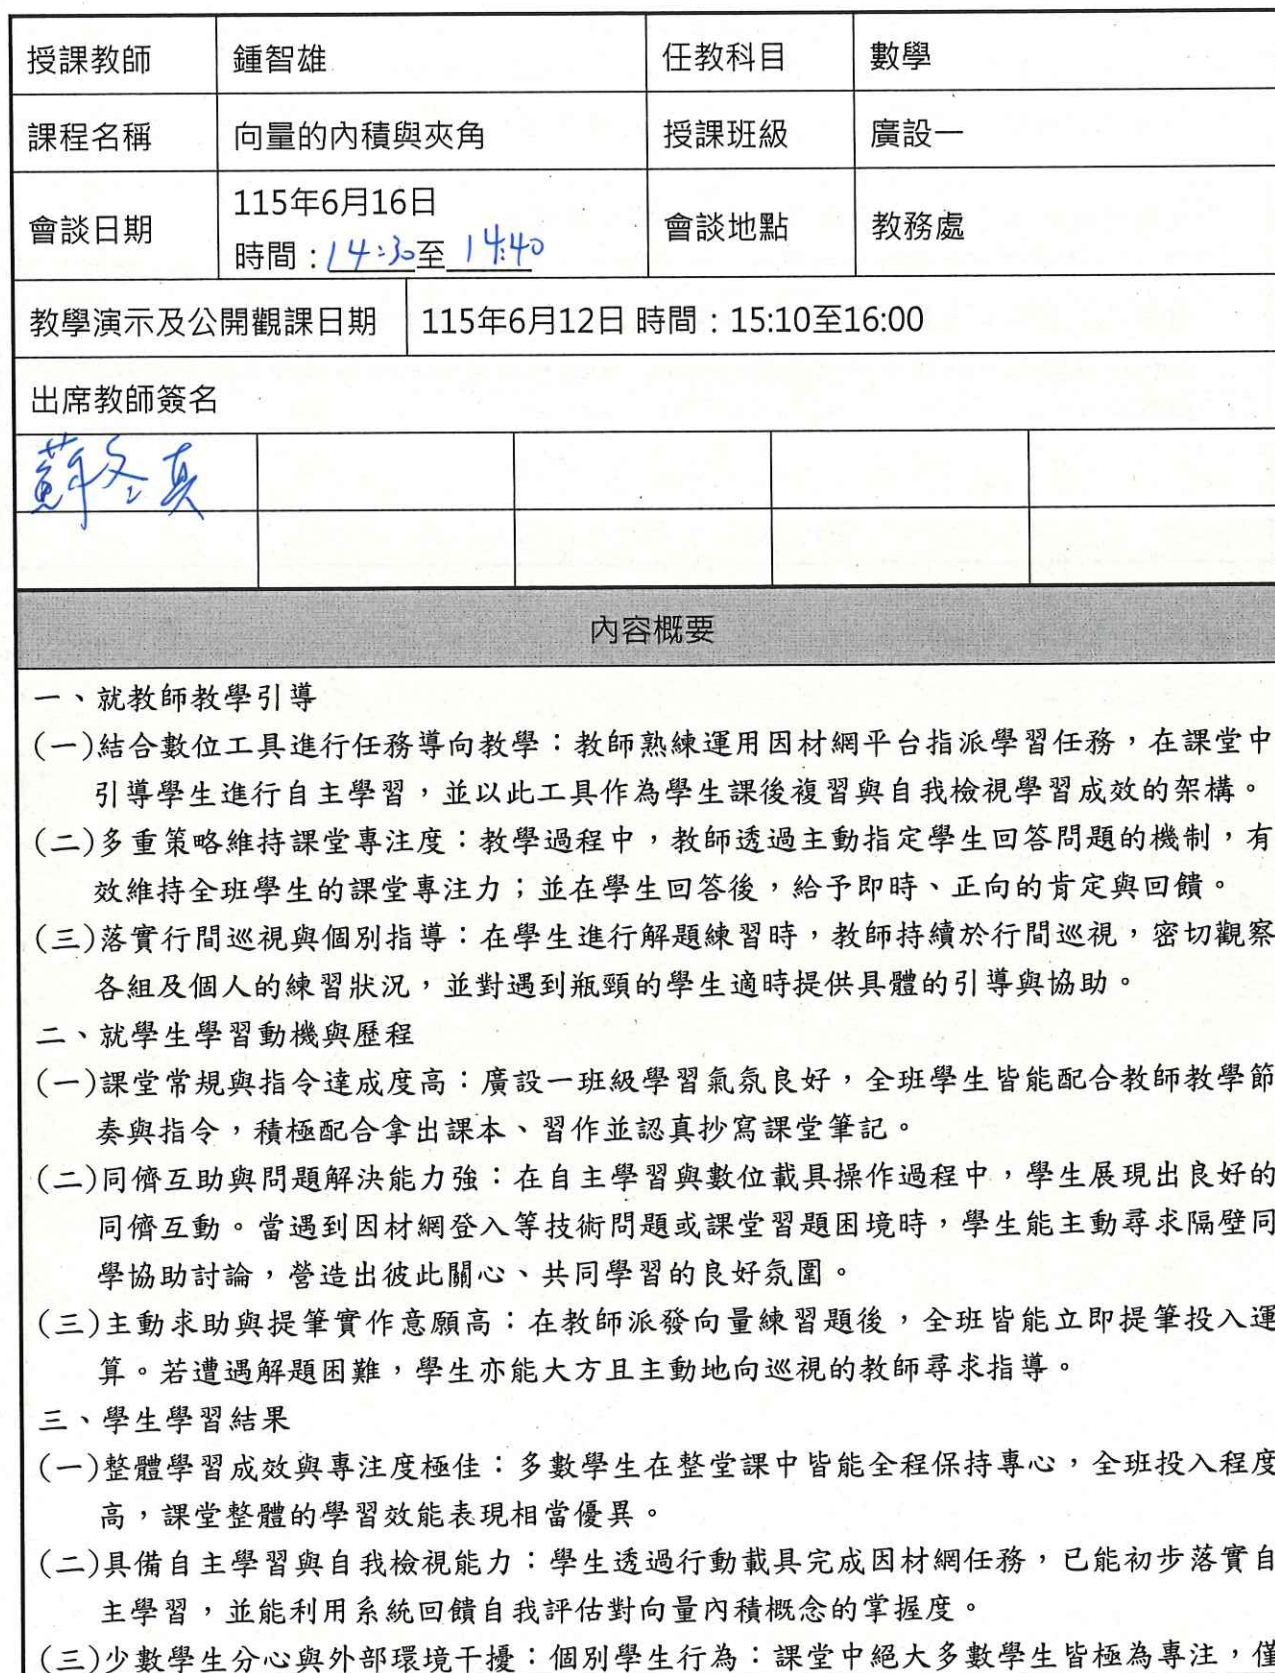 授課教師 鍾智雄 任教科目 數學
課程名稱 向量的內積與夾角 授課班級 廣設一
會談日期 115年6月16日 會談地點 教務處
時間：14:30至 14:40
教學演示及公開觀課日期 115年6月12日 時間：15:10至16:00
出席教師簽名
蘇冬真
內容概要
一、就教師教學引導
(一)結合數位工具進行任務導向教學：教師熟練運用因材網平台指派學習任務，在課堂中
引導學生進行自主學習，並以此工具作為學生課後複習與自我檢視學習成效的架構。
(二)多重策略維持課堂專注度：教學過程中，教師透過主動指定學生回答問題的機制，有
效維持全班學生的課堂專注力；並在學生回答後，給予即時、正向的肯定與回饋。
(三)落實行間巡視與個別指導：在學生進行解題練習時，教師持續於行間巡視，密切觀察
各組及個人的練習狀況，並對遇到瓶頸的學生適時提供具體的引導與協助。
二、就學生學習動機與歷程
(一)課堂常規與指令達成度高：廣設一班級學習氣氛良好，全班學生皆能配合教師教學節
奏與指令，積極配合拿出課本、習作並認真抄寫課堂筆記。
(二)同儕互助與問題解決能力強：在自主學習與數位載具操作過程中，學生展現出良好的
同儕互動。當遇到因材網登入等技術問題或課堂習題困境時，學生能主動尋求隔壁同
學協助討論，營造出彼此關心、共同學習的良好氛圍。
(三)主動求助與提筆實作意願高：在教師派發向量練習題後，全班皆能立即提筆投入運
算。若遭遇解題困難，學生亦能大方且主動地向巡視的教師尋求指導。
三、學生學習結果
(一)整體學習成效與專注度極佳：多數學生在整堂課中皆能全程保持專心，全班投入程度
高，課堂整體的學習效能表現相當優異。
(二)具備自主學習與自我檢視能力：學生透過行動載具完成因材網任務，已能初步落實自
主學習，並能利用系統回饋自我評估對向量內積概念的掌握度。
(三)少數學生分心與外部環境干擾：個別學生行為：課堂中絕大多數學生皆極為專注，僅